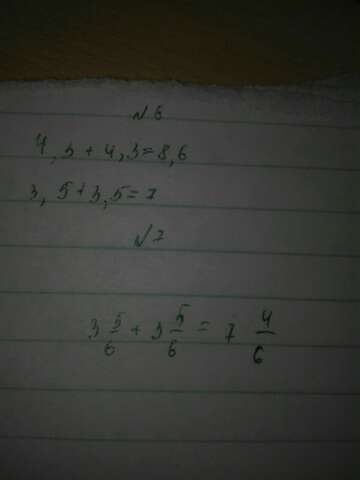 №6
4,3+4,3=8,6
3,5+3,5=7
№7
3 5/6 + 3 5/6 = 7 4/6